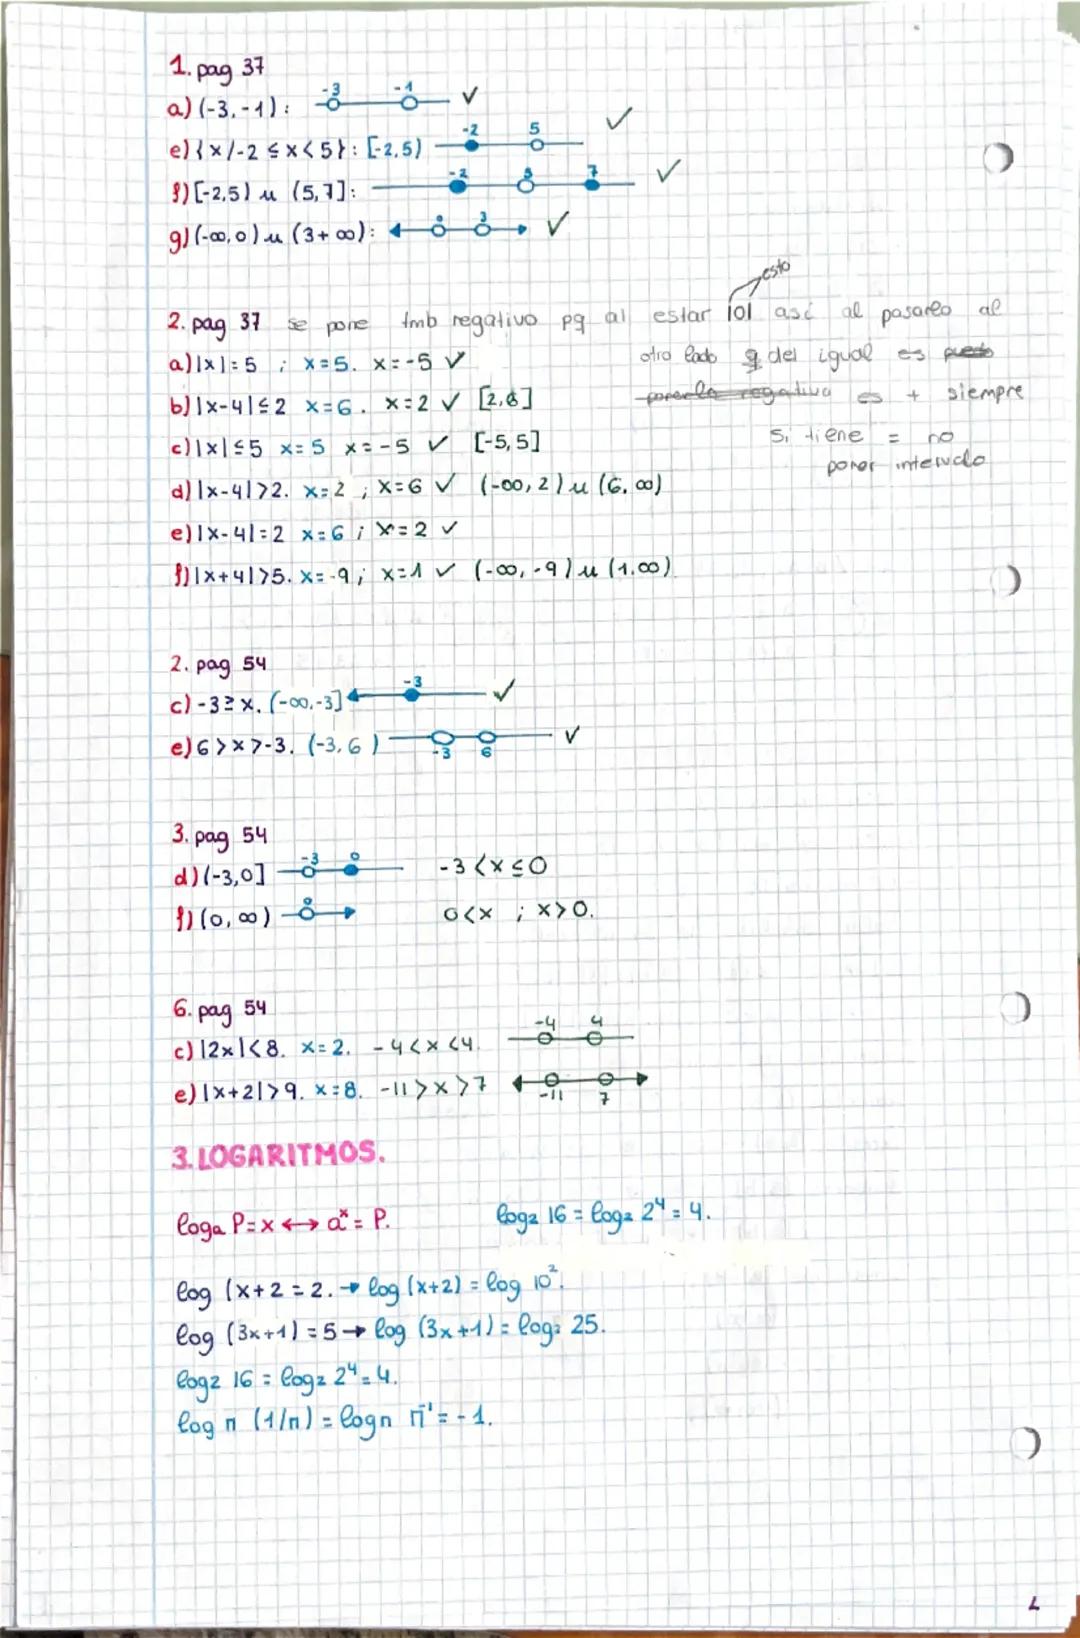 1. pag 37
a) (-3,-1): -3 -1 ✓
e) {x/-2 ≤ x < 5}: [-2,5) -2 5 ✓
f) [-2,5) u (5,7]: -2 5 7 ✓
g) (-∞,0) u (3+∞): 0 3 ✓
esto
2. pag 37 se pone tmb negativo pq al estar |0| así al pasarlo al
a) |x| = 5 ; x = 5. x = -5 ✓ otro lado q del igual es puesto
b) |x-4| ≤ 2 x = 6. x = 2 ✓ [2,6] ponerlo negativo es + siempre
c) |x| ≤ 5 x = 5 x = -5 ✓ [-5,5] Si tiene = no
poner intervalo
d) |x-4| > 2. x = 2 ; x = 6 ✓ (-∞, 2) u (6, ∞)
e) |x-4| = 2 x = 6 ; x = 2 ✓
f) |x+4| > 5. x = -9 ; x = 1 ✓ (-∞, -9) u (1.∞)
2. pag 54
c) -3 ≥ x. (-∞,-3] -3 ✓
e) 6 > x > -3. (-3,6) -3 6 ✓
3. pag 54
d) (-3,0] -3 0 -3 < x ≤ 0
f) (0, ∞) 0 0 < x ; x > 0.
6. pag 54
c) |2x| < 8. x = 2. -4 < x < 4. -4 4
e) |x+2| > 9. x = 8. -11 > x > 7 -11 7
3. LOGARITMOS.
loga P = x ↔ aˣ = P. log₂ 16 = log₂ 2⁴ = 4.
log (x+2 = 2. → log (x+2) = log 10².
log (3x+1) = 5 → log (3x+1) = log₂ 25.
log₂ 16 = log₂ 2⁴ = 4.
log n (1/n) = log n n⁻¹ = -1.